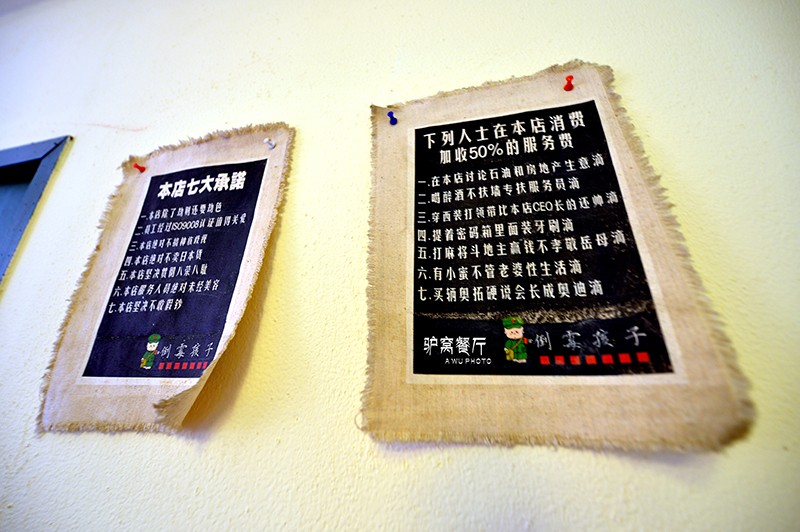 本店七大承諾
一.本店除了劫财还要劫色
二.员工经过ISO9008认证值得关爱
三.本店绝对不搞种族歧视
四.本店绝对不卖日本货
五.本店坚决贯彻八荣八耻
六.本店服务人员绝对未经美容
七.本店坚决不收假钞
倒霉孩子
下列人士在本店消费
加收50%的服务费
一.在本店讨论石油和房地产生意滴
二.喝醉酒不扶墙专扶服务员滴
三.穿西装打领带比本店CEO长的还帅滴
四.提着密码箱里面装牙刷滴
五.打麻将斗地主赢钱不孝敬岳母滴
六.有小蜜不管老婆性生活滴
七.买辆奥拓硬说会长成奥迪滴
驴窝餐厅
AWUPHOTO
倒霉孩子